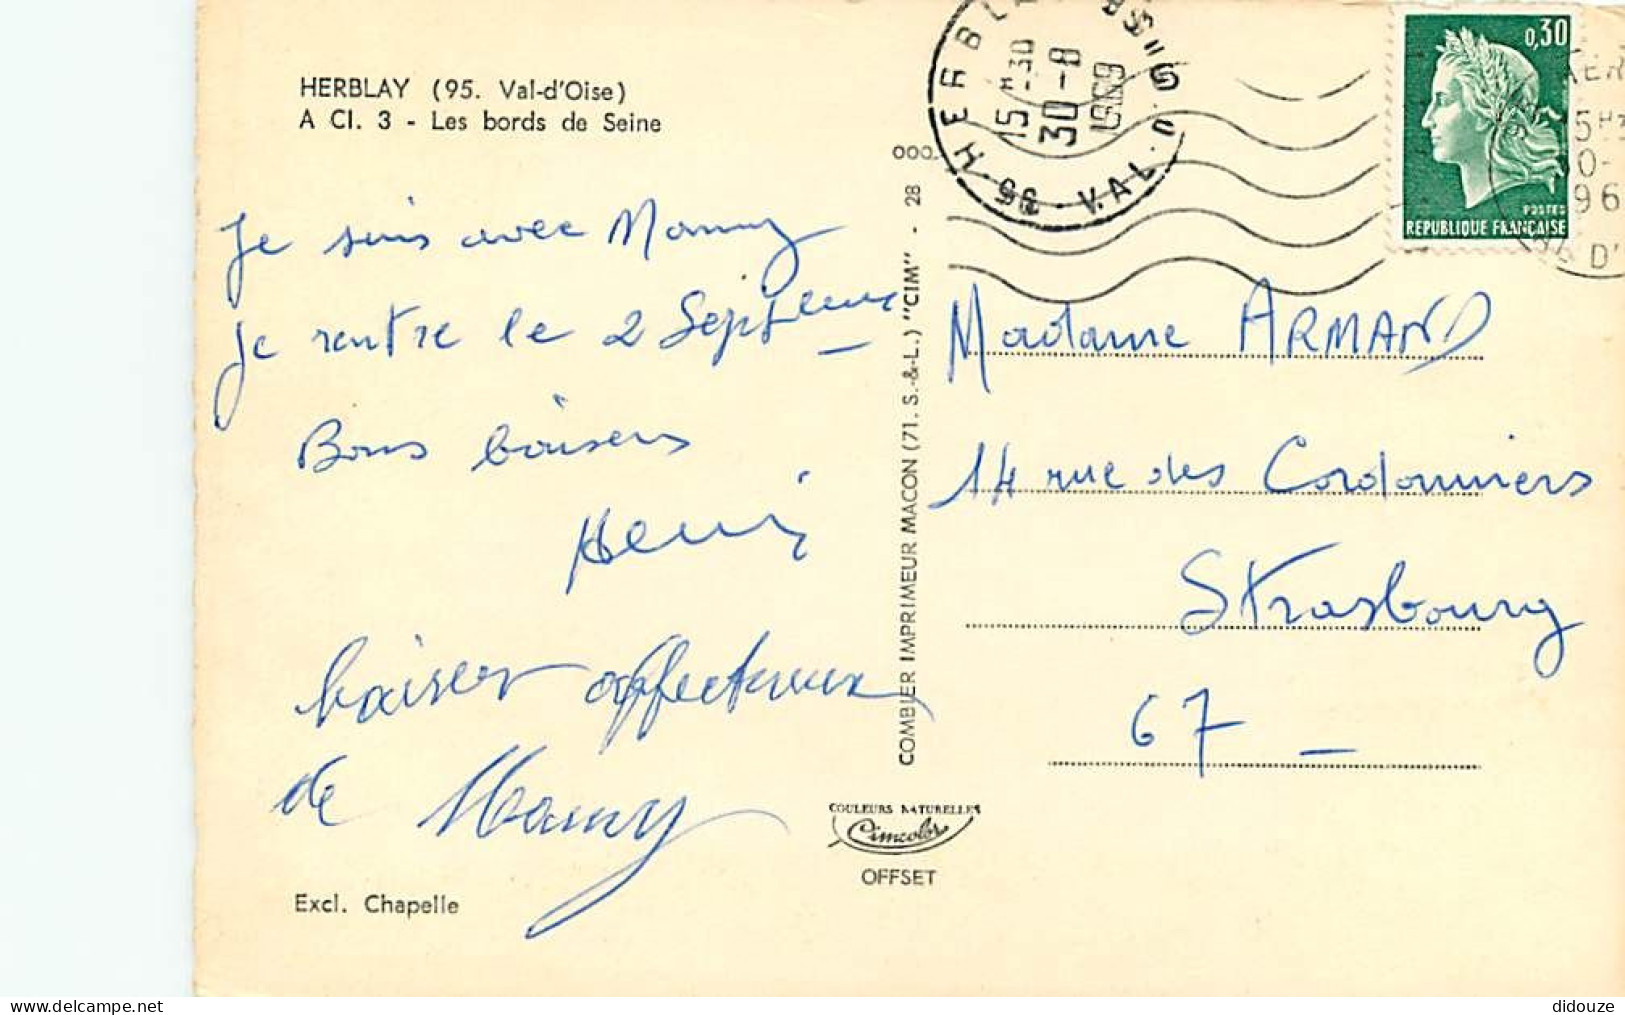 HERBLAY (95. Val-d'Oise)
A Cl. 3 - Les bords de Seine
Je suis avec Mamy
Je rentre le 2 Septembre
Bons baisers
Henri
baiser affectueux
de Mamy
Excl. Chapelle
COMBIER IMPRIMEUR MACON (71. S.-&-L.) "CIM" - 28
COULEURS NATURELLES
Cimcolor
OFFSET
HERBLAY
15H30
30-8
1969
95 VAL D'OISE
0,30
POSTES
REPUBLIQUE FRANÇAISE
Madame ARMAND
14 rue des Cordonniers
Strasbourg
67 _
didouze